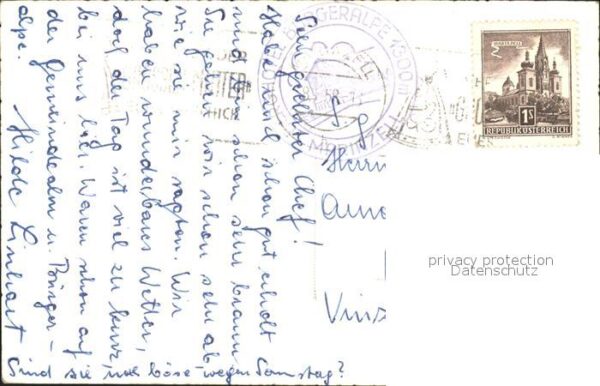 Sehr geehrter Chef!
Habe mich schon gut erholt
und bin schon sehr braun.
Sie gehen mir schon sehr ab
wie sie mir sagten. Wir
haben wunderbares Wetter,
daß der Tag ist viel zu kurz,
bei uns hier. Waren schon auf
der Gemeindealm u. Bürger-
alpe.
Hilde Linhart
Sind sie, noch böse wegen Samstag?
BÜRGERALPE 1300 m
MARIAZELL
MARIAZELL
1 S
REPUBLIK ÖSTERREICH
Herrn
Vins
privacy protection
Datenschutz